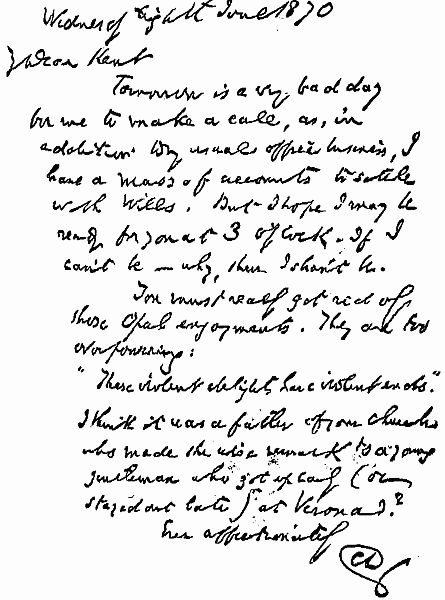 Wednesy Eighth June 1870
My Dear Kent
Tomorrow is a very bad day
for me to make a call, as, in
addition to my usual office business, I
have a mass of accounts to settle
with Wills. But I hope I may be
ready for you at 3 o'clock. If I
can't be — why, then I shan't be.
You must really get rid of
those Opal enjoyments. They are too
overpowering:
"These violent delights have violent ends".
I think it was a father of your church
who made the wise remark to a young
gentleman who got up early (or
stayed out late) at Verona?
Ever affectionately
CD